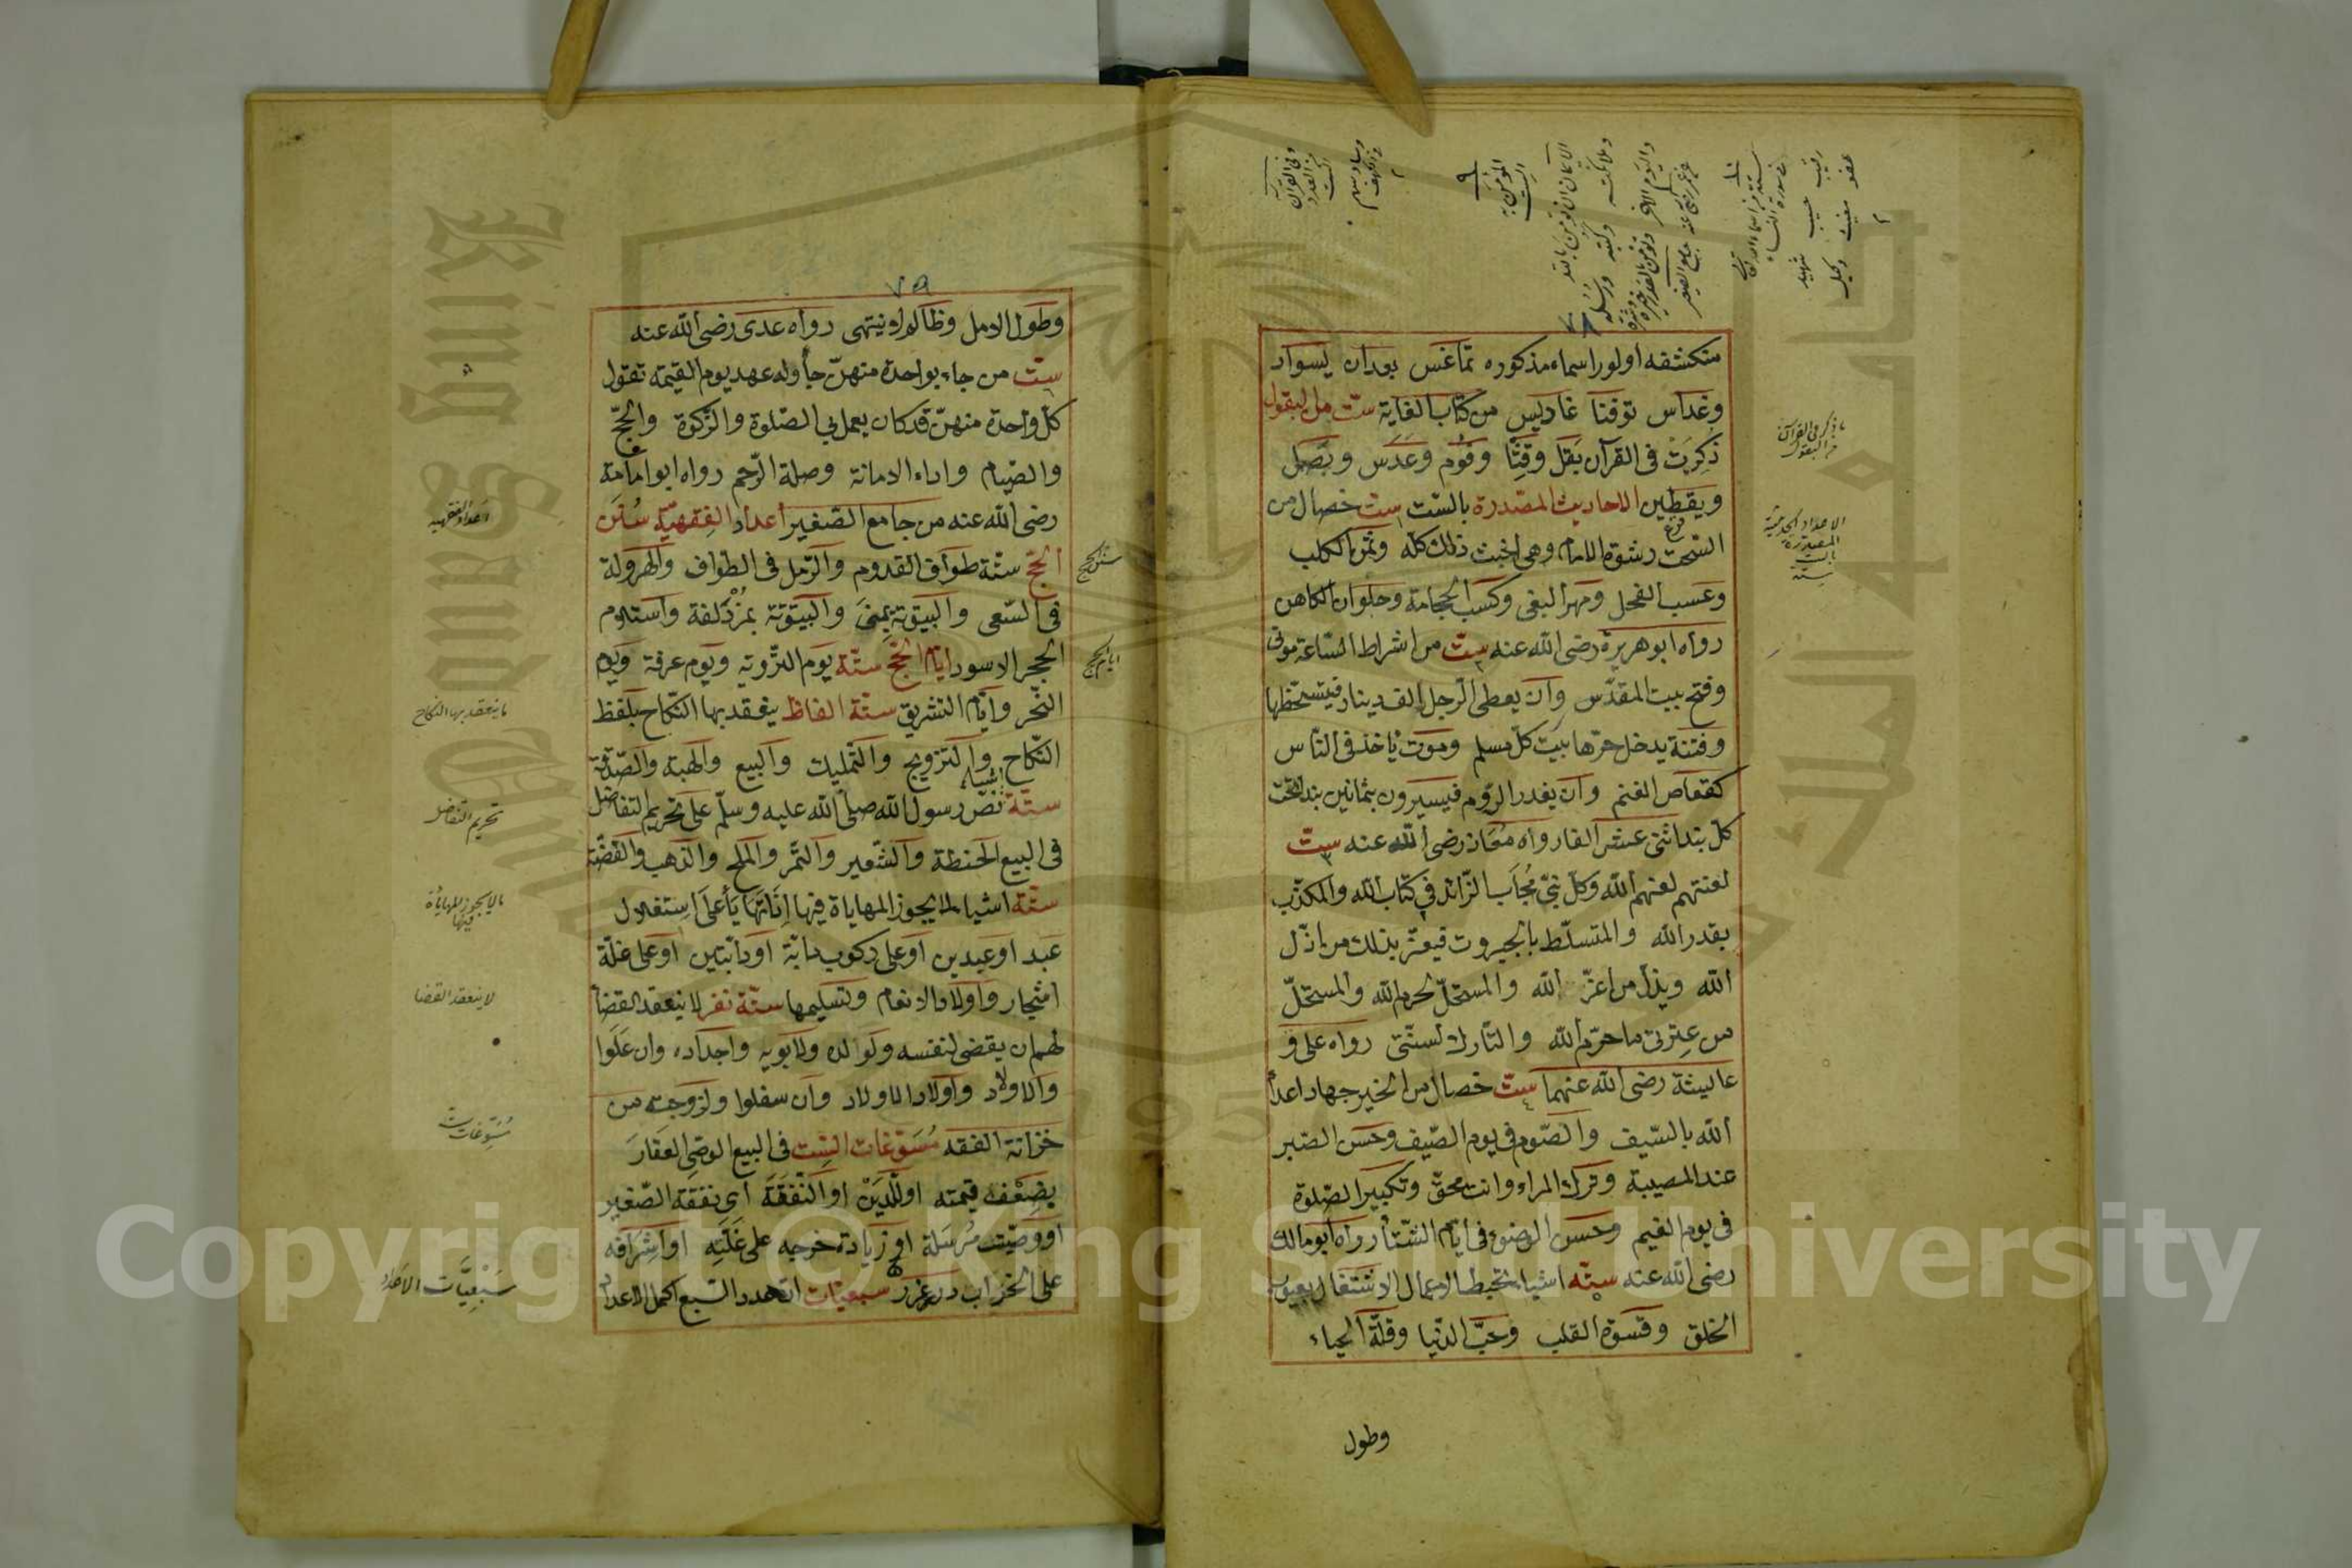 ٧٨
متكشفه اولور اسماء مذكوره تماغس بودان يسوار
وغداس توفنا غاديس من كتاب الغاية ست من البقول
ذكرت فى القرآن بقل وقثا وفوم وعدس وبصل
ويقطين الاحاديث المصدرة بالست ست خصال من
السحت رشوة الامام وهى اخبث ذلك كله وثمن الكلب
وعسب الفحل ومهر البغى وكسب الحجامة وحلوان الكاهن
رواه ابو هريرة رضى الله عنه ست من اشراط الساعة موتى
وفتح بيت المقدس وان يعطى الرجل الف دينار فيتسخطها
وفتنة يدخل حرها بيت كل مسلم وموت ياخذ فى الناس
كقعاص الغنم وان يغدر الروم فيسيرون بثمانين بندا تحت
كل بند اثنى عشر الفا رواه معاذ رضى الله عنه ست
لعنتهم لعنهم الله وكل نبى مجاب الزائد فى كتاب الله والمكذب
بقدر الله والمتسلط بالجبروت فيعز بذلك من اذل
الله ويذل من اعز الله والمستحل لحرم الله والمستحل
من عترتى ما حرم الله والتارك لسنتى رواه على و
عايشة رضى الله عنهما ست خصال من الخير جهاد اعداء
الله بالسيف والصوم فى يوم الصيف وحسن الصبر
عند المصيبة وترك المراء وانت محق وتكبير الصلوة
فى يوم الغيم وحسن الوضوء فى ايام الشتاء رواه ابو مالك
رضى الله عنه ستة اشياء تحبط الاعمال الاشتغال بعيوب
الخلق وقسوة القلب وحب الدنيا وقلة الحياء
وطول
ما ذكر فى القرآن
من البقول
الاعداد الحديثية
المصدرة
بالست
ستة
٧٩
وطول الامل وظالم لا ينتهى رواه عدى رضى الله عنه
ست من جاء بواحدة منهن جاء وله عهد يوم القيمة تقول
كل واحدة منهن قد كان يعمل بى الصلوة والزكوة والحج
والصيام واداء الامانة وصلة الرحم رواه ابو امامة
رضى الله عنه من جامع الصغير اعداد الفقهية سنن
الحج ستة طواف القدوم والرمل فى الطواف والهرولة
فى السعى والبيتوتة بمنى والبيتوتة بمزدلفة واستلام
الحجر الاسود ايام الحج ستة يوم التروية ويوم عرفة ويوم
النحر وايام التشريق ستة الفاظ ينعقد بها النكاح بلفظ
النكاح والتزويج والتمليك والبيع والهبة والصدقة
ستة اشياء نص رسول الله صلى الله عليه وسلم على تحريم التفاضل
فى البيع الحنطة والشعير والتمر والملح والذهب والفضة
ستة اشياء لا يجوز المهاياة فيها ان تهايأ على استغلال
عبد او عبدين او على ركوب دابة او دابتين او على غلة
اشجار واولاد الانعام وتسليمها ستة نفر لا ينعقد القضاء
لهم ان يقضى لنفسه ولوالده ولابويه واجداده وان علوا
والاولاد واولاد الاولاد وان سفلوا ولزوجته من
خزانة الفقه مسوغات الست فى البيع الوصى العقار
بضعف قيمته او للدين او النفقة اى نفقة الصغير
او وصيت مرسلة او زيادة خرجه على غلته او اشرافه
على الخراب درر غرر سبعيات العدد السبع اكمل الاعداد
اعداد الفقهية
سنن الحج
ايام الحج
ما ينعقد بها النكاح
تحريم التفاضل
ما لا يجوز المهاياة
فيها
لا ينعقد القضا
مسوغات ست
سبعيات الاعداد
Copyright © King Saud University
King Saud University
جامعة الملك سعود
1957